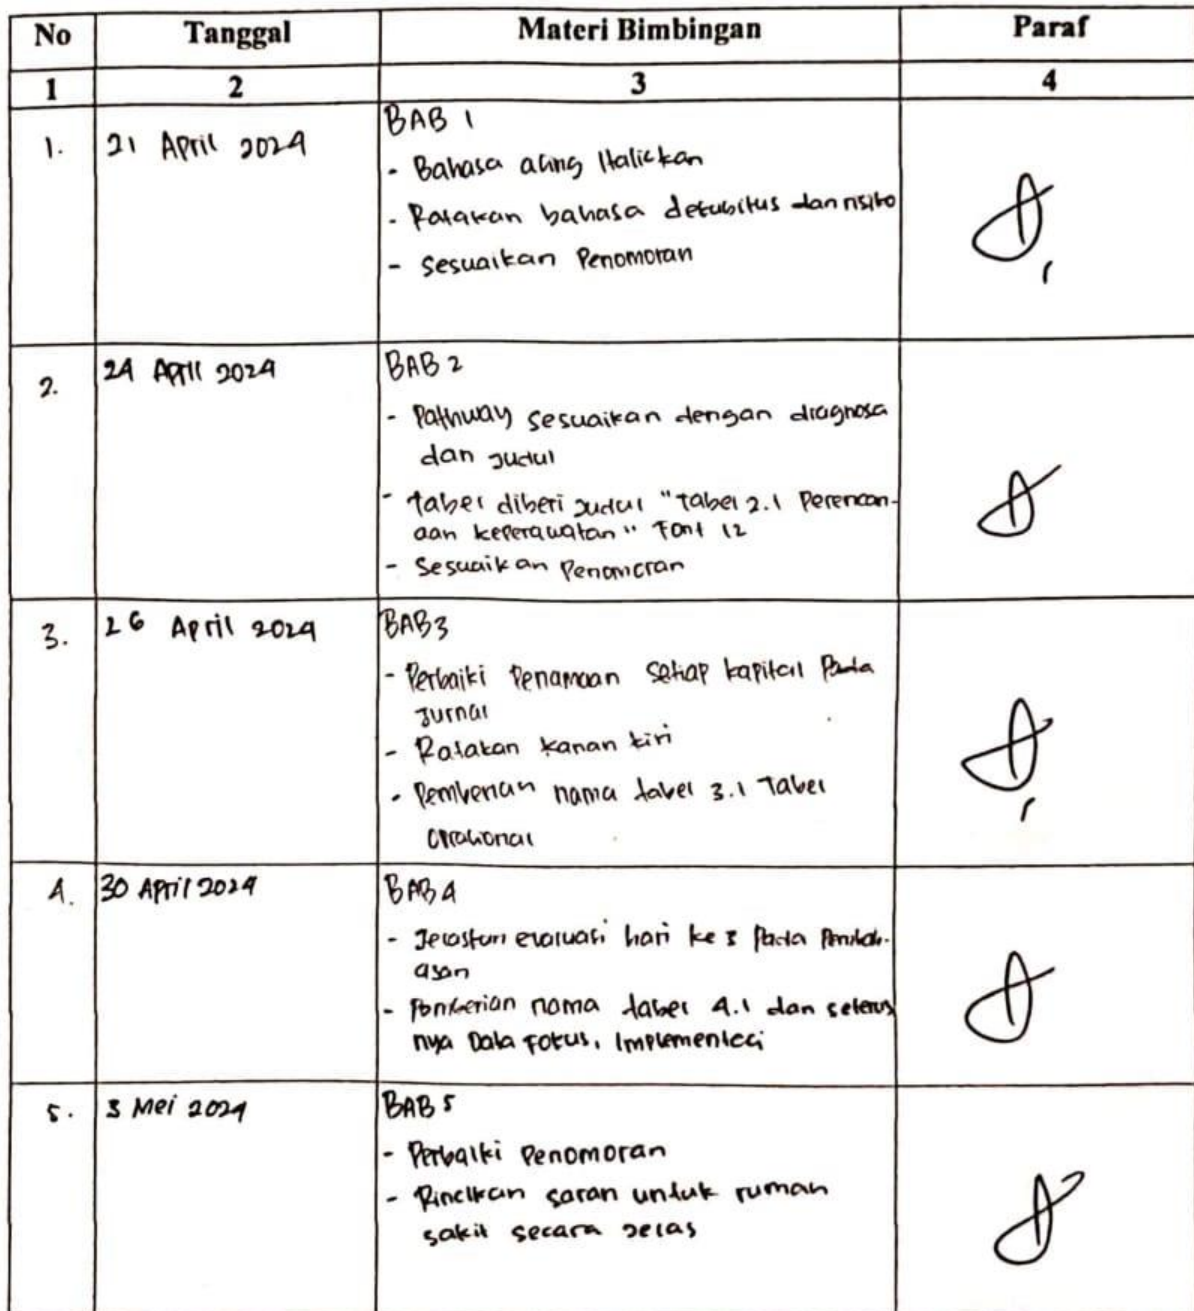 No Tanggal Materi Bimbingan Paraf
1 2 3 4
1. 21 April 2024 BAB 1
- Bahasa asing Italickan
- Ratakan bahasa dekubitus dan risiko
- Sesuaikan Penomoran
2. 24 April 2024 BAB 2
- Pathway sesuaikan dengan diagnosa
dan judul
- tabel diberi judul "tabel 2.1 Perencan-
aan keperawatan" Font 12
- Sesuaikan Penomoran
3. 26 April 2024 BAB 3
- Perbaiki Penamaan setiap kapital pada
Jurnal
- Ratakan kanan kiri
- Pemberian nama tabel 3.1 Tabel
Oprasional
4. 30 April 2024 BAB 4
- Jelaskan evaluasi hari ke 3 pada Pembah-
asan
- Pemberian nama tabel 4.1 dan seterus
nya Data Fokus, Implementasi
5. 3 Mei 2024 BAB 5
- Perbaiki Penomoran
- Rincikan saran untuk rumah
sakit secara jelas